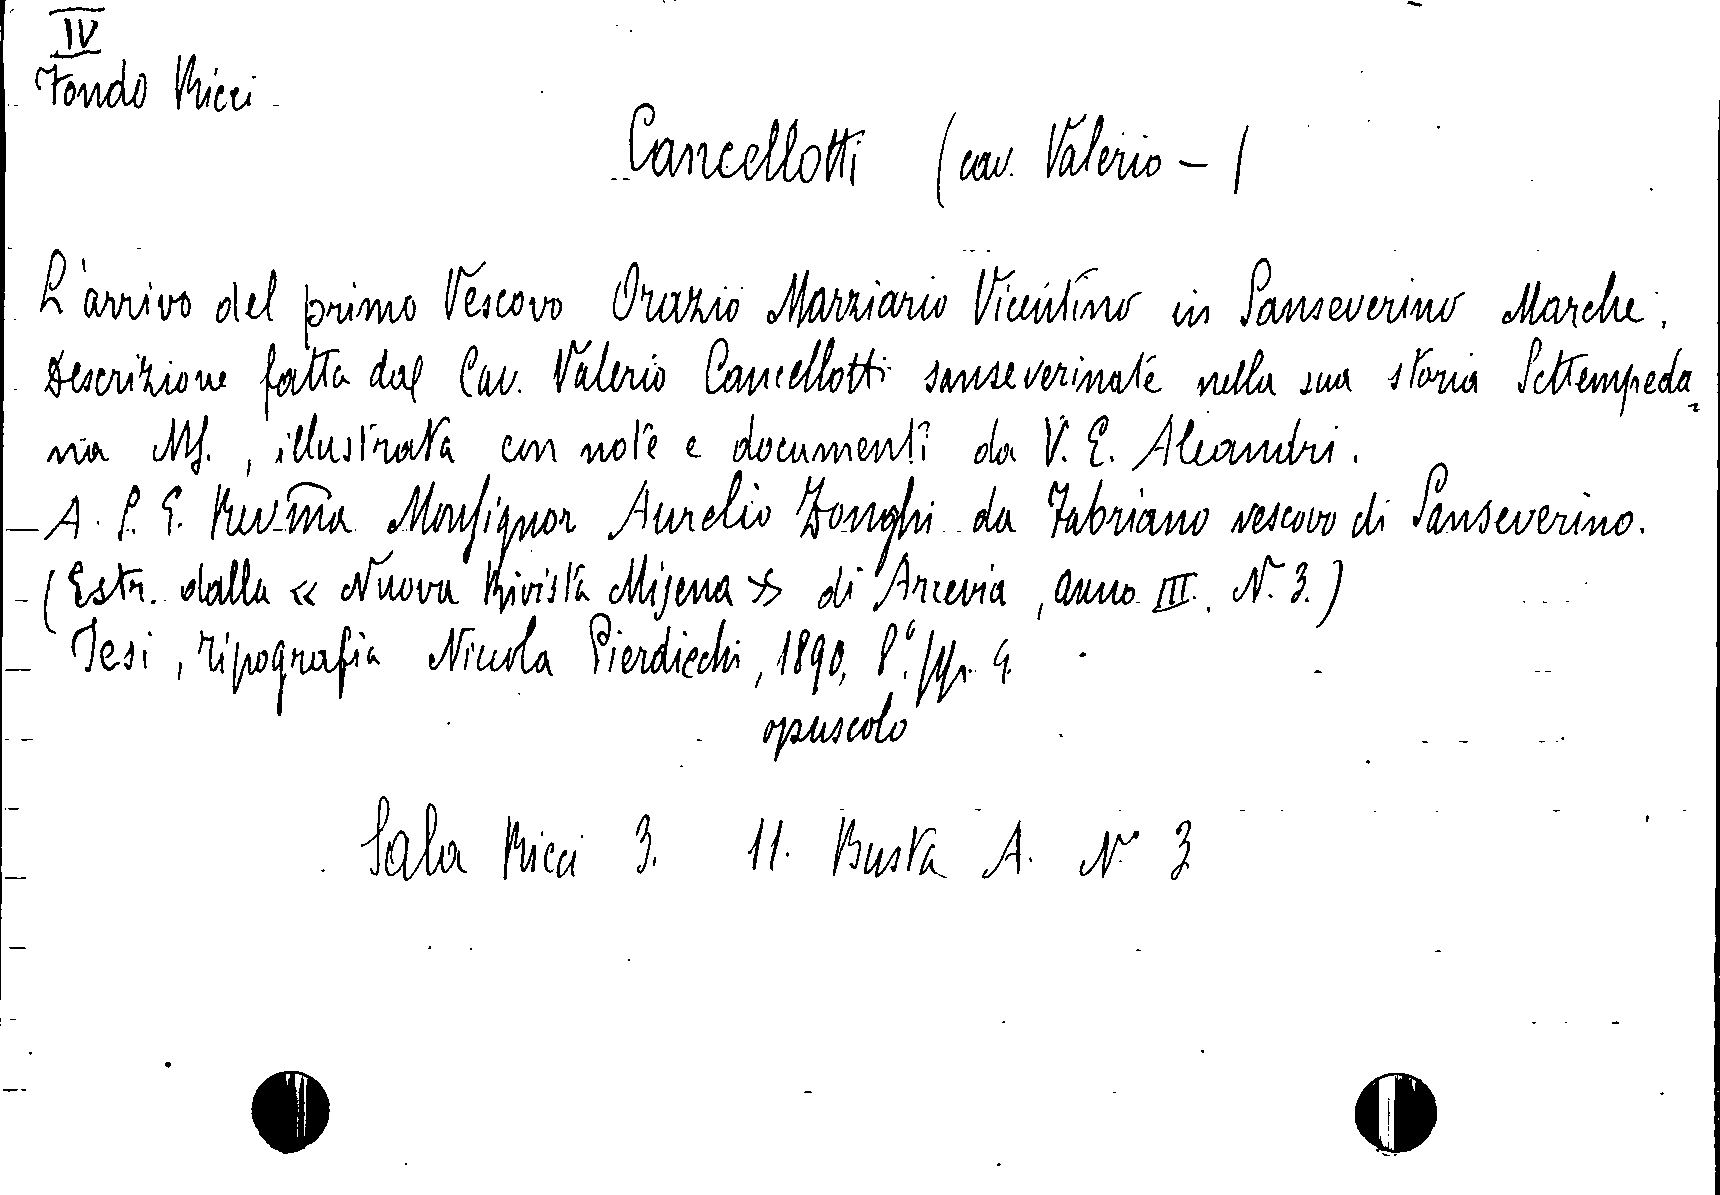 IV
Fondo Ricci
Cancellotti (cav. Valerio - )
L'arrivo del primo Vescovo Orazio Marziario Vicentino in Sanseverino Marche.
Descrizione fatta dal Cav. Valerio Cancellotti sanseverinate nella sua storia Settempeda
na MS., illustrata con note e documenti da V. E. Aleandri.
A. S. E. Rev-ma Monsignor Aurelio Zonghi da Fabriano vescovo di Sanseverino.
(Estr. dalla « Nuova Rivista Misena » di Arcevia, anno III. N. 3.)
Jesi, tipografia Niccola Pierdicchi, 1890, 8°. pp.
opuscolo
Sala Ricci 3. 11. Busta A. N° 3